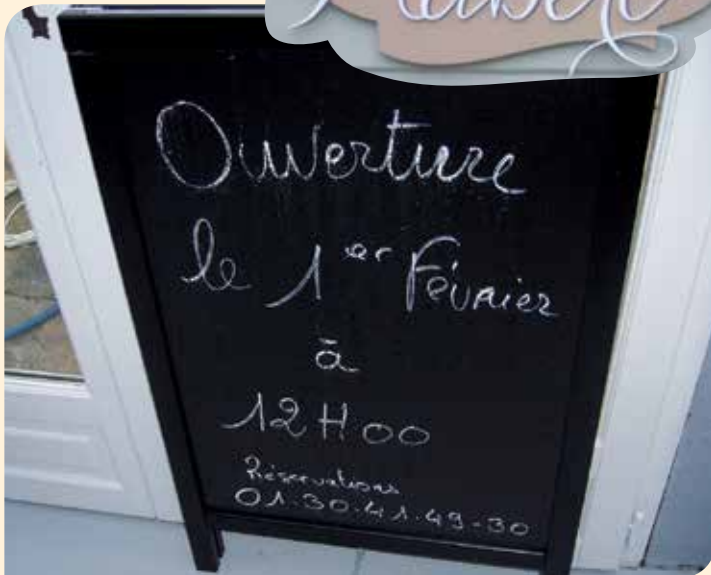 Ouverture
le 1er Février
à
12H00
Réservations
01.30.41.49-30